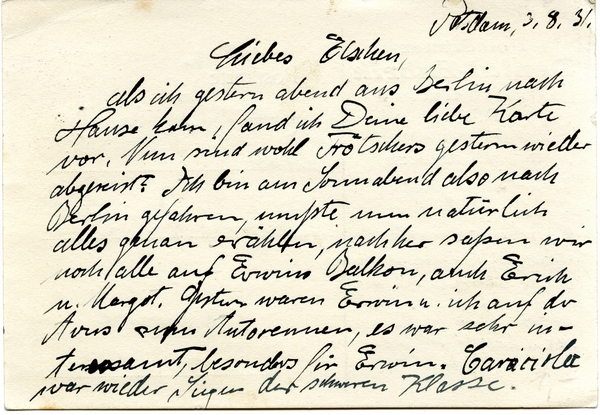 Potsdam, 3. 8. 31.
Liebes Elschen,
als ich gestern abend aus Berlin nach
Hause kam, fand ich Deine liebe Karte
vor. Nun sind wohl Frötschers gestern wieder
abgereist? Ich bin am Sonnabend also nach
Berlin gefahren, mußte nun natürlich
alles genau erzählen, nachher saßen wir
noch alle auf Erwins Balkon, auch Erich
u. Margot. Gestern waren Erwin u. ich auf der
Avus zum Autorennen, es war sehr in-
teressant, besonders für Erwin. Caraciola
war wieder Sieger der schweren Klasse.